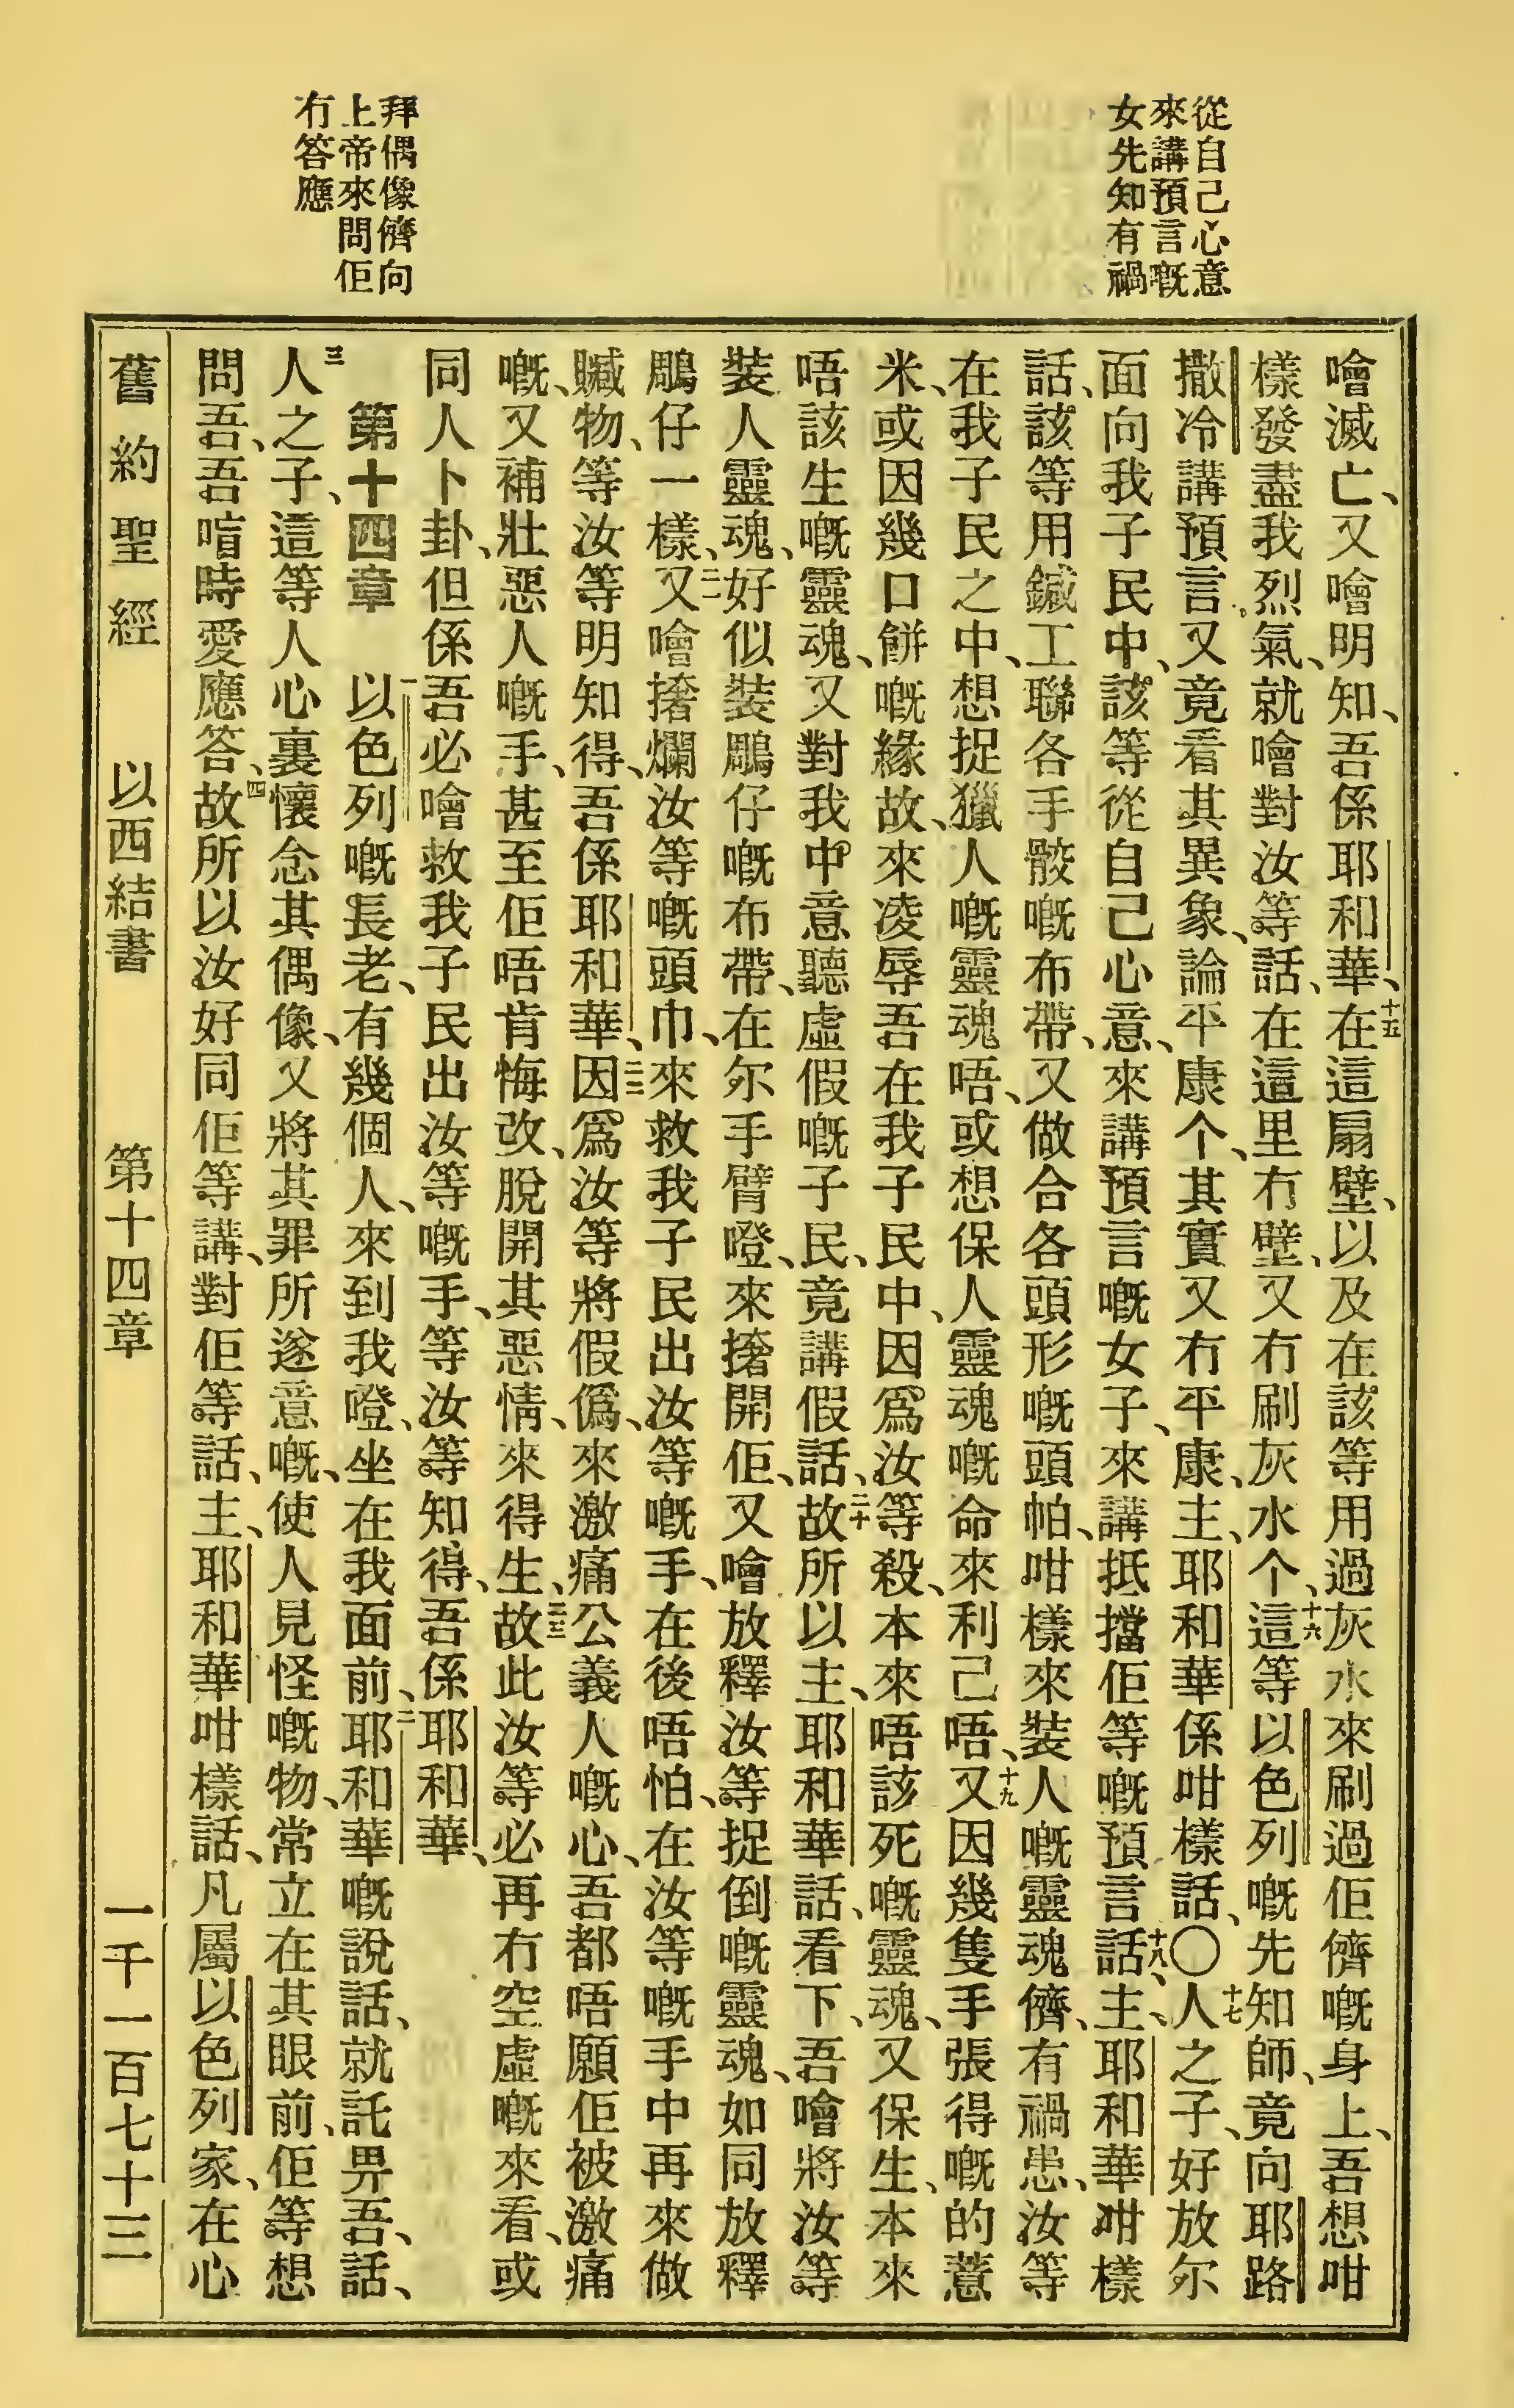 從自己心意
來講預言嘅
女先知有禍
拜偶像儕向
上帝來問佢
冇答應
噲滅亡、又噲明知、吾係耶和華、十五在這扇壁、以及在該等用過灰水來刷過佢儕嘅身上、吾想咁
樣發盡我烈氣、就噲對汝等話、在這里冇壁、又冇刷灰水个、十六這等以色列嘅先知師、竟向耶路
撒冷講預言、又竟看其異象、論平康个、其實又冇平康、主、耶和華係咁樣話、〇十七人之子、好放尔
面向我子民中、該等從自己心意、來講預言嘅女子、來講抵擋佢等嘅預言、十八話、主、耶和華咁樣
話、該等用鍼工聯各手骹嘅布帶、又做合各頭形嘅頭帕、咁樣來裝人嘅靈魂儕、有禍患、汝等
在我子民之中、想捉獵人嘅靈魂唔、或想保人靈魂嘅命來利己唔、十九又因幾隻手張得嘅的薏
米、或因幾口餅嘅緣故、來凌辱吾在我子民中、因爲汝等殺、本來唔該死嘅靈魂、又保生、本來
唔該生嘅靈魂、又對我中意聽虛假嘅子民、竟講假話、二十故所以主、耶和華話、看下、吾噲將汝等
裝人靈魂、好似裝鵰仔嘅布帶、在尔手臂噔、來撦開佢、又噲放釋汝等捉倒嘅靈魂、如同放釋
鵰仔一樣、二一又噲撦爛汝等嘅頭巾、來救我子民出汝等嘅手、在後唔怕、在汝等嘅手中再來做
贓物、等汝等明知得、吾係耶和華、二二因爲汝等將假僞、來激痛公義人嘅心、吾都唔願佢被激痛
嘅、又補壯惡人嘅手、甚至佢唔肯悔改、脫開其惡情、來得生、二三故此汝等必再冇空虛嘅來看、或
同人卜卦、但係吾必噲救我子民出汝等嘅手、等汝等知得、吾係耶和華、
第十四章　一以色列嘅長老、有幾個人、來到我噔、坐在我面前、二耶和華嘅說話、就託畀吾、話、
三人之子、這等人心裏懷念其偶像、又將其罪所遂意嘅、使人見怪嘅物、常立在其眼前、佢等想
問吾、吾㖡時愛應答、四故所以汝好同佢等講、對佢等話、主、耶和華咁樣話、凡屬以色列家、在心
舊約聖經　以西結書　第十四章　一千一百七十三